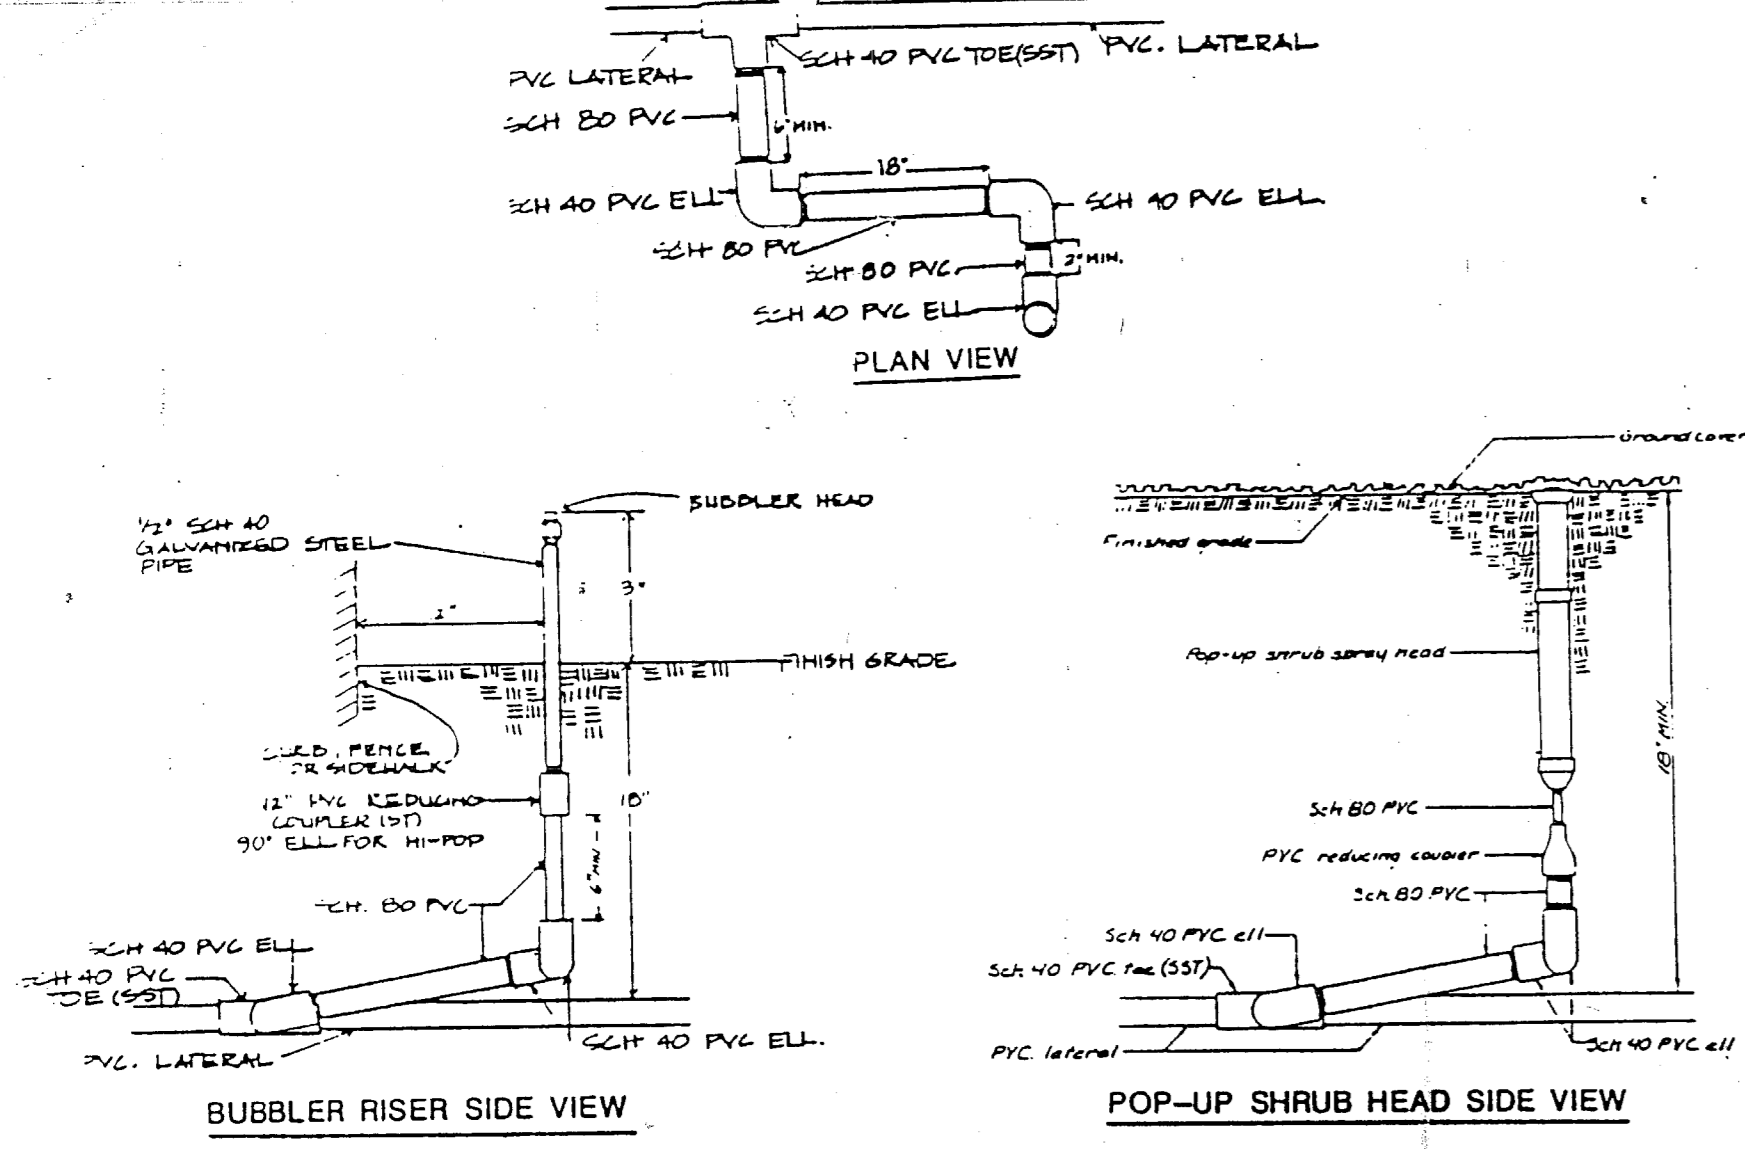 PVC LATERAL
SCH 40 PVC TOE(SST)
PVC. LATERAL
SCH 80 PVC
6" MIN.
18"
SCH 40 PVC ELL
SCH 40 PVC ELL
SCH 80 PVC
SCH 80 PVC
2" MIN.
SCH 40 PVC ELL
PLAN VIEW
BUBBLER HEAD
1/2" SCH 40
GALVANIZED STEEL
PIPE
3"
FINISH GRADE
CURB, FENCE
OR SIDEWALK
12" PVC REDUCING
COUPLER (ST)
90° ELL FOR HI-POP
18"
6" MIN
SCH. 80 PVC
SCH 40 PVC ELL
SCH 40 PVC
TOE (SST)
PVC. LATERAL
SCH 40 PVC ELL.
BUBBLER RISER SIDE VIEW
Ground cover
Finished grade
Pop-up shrub spray head
18" MIN.
Sch 80 PVC
PVC reducing coupler
Sch 80 PVC
Sch 40 PVC ell
Sch 40 PVC tee (SST)
PVC. lateral
Sch 40 PVC ell
POP-UP SHRUB HEAD SIDE VIEW